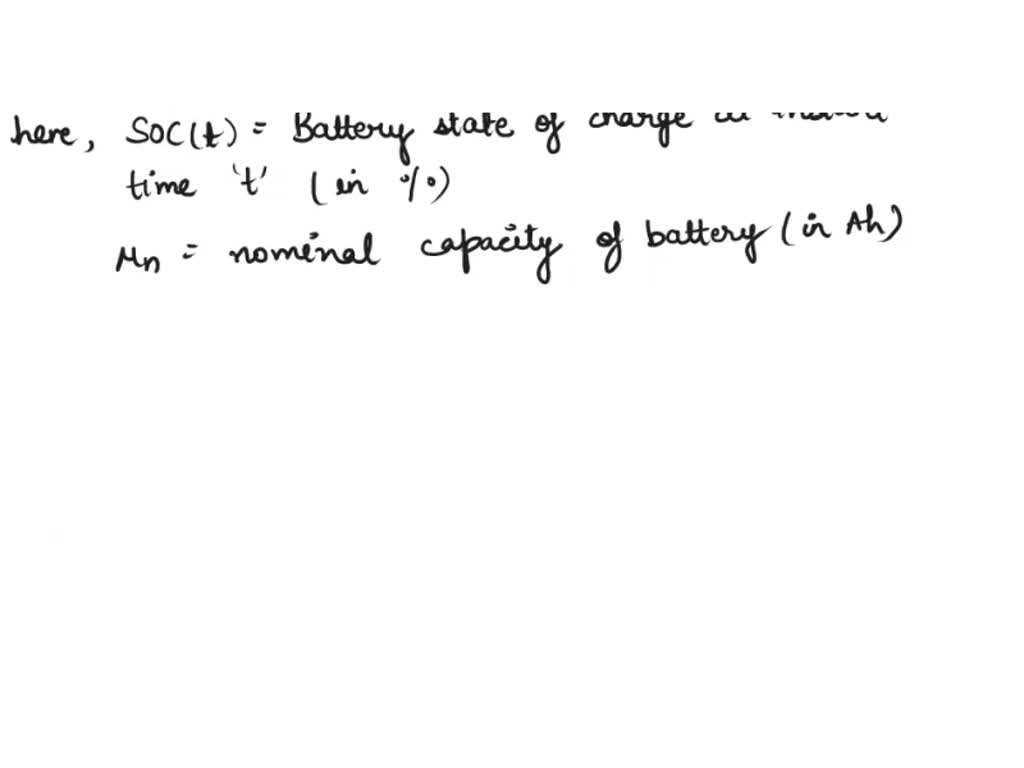 here, SOC(t) = Battery state of charge
time 't' (in %)
Mn = nominal capacity of battery (in Ah)